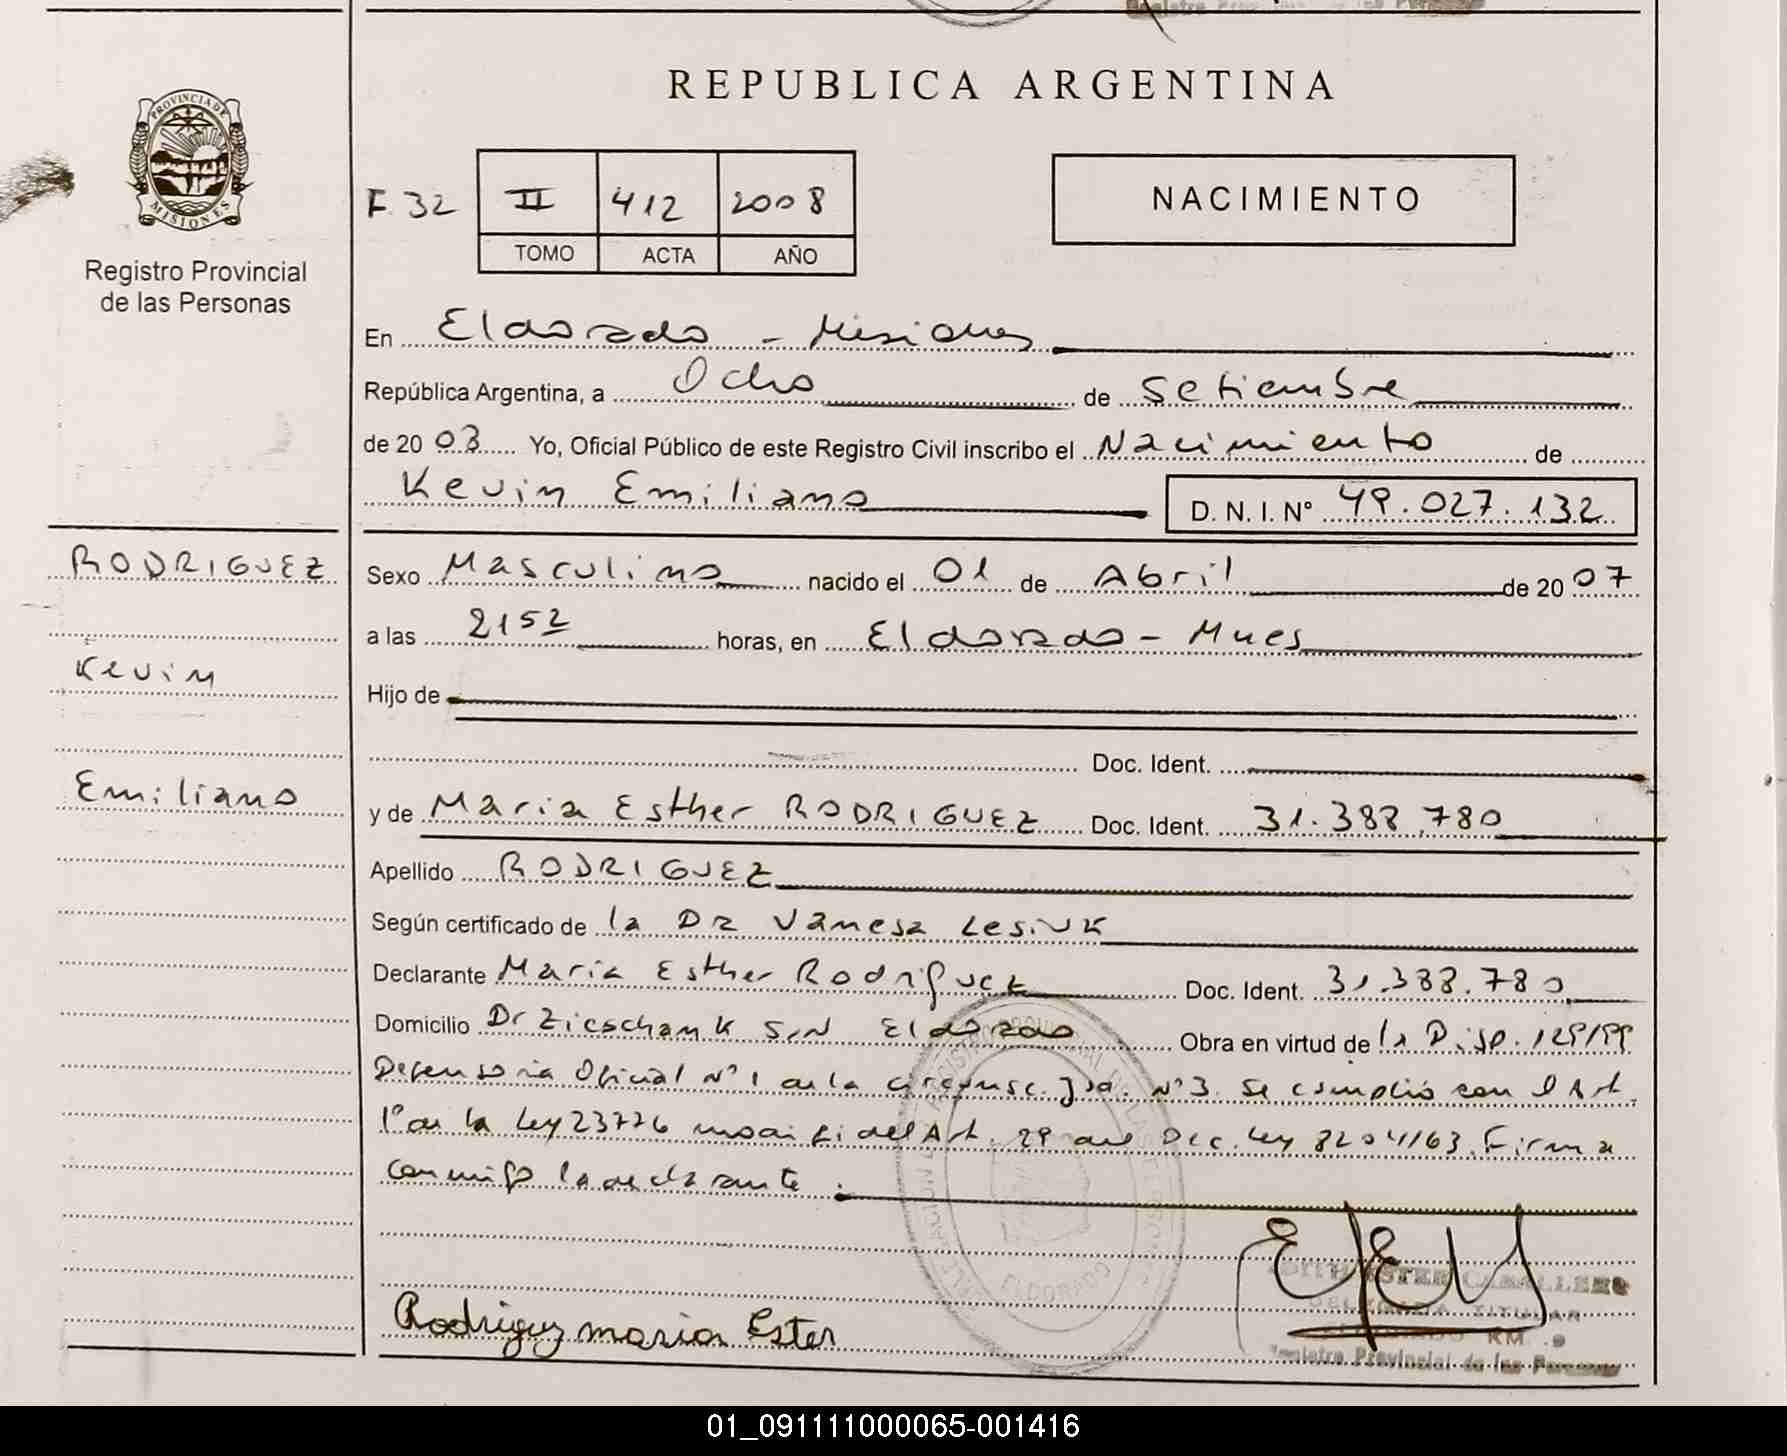 REPUBLICA ARGENTINA
PROVINCIA DE
MISIONES
Registro Provincial
de las Personas
F 32 II 412 2008
TOMO ACTA AÑO
NACIMIENTO
En Eldorado - Misiones
República Argentina, a Ocho de Setiembre
de 20 08 Yo, Oficial Público de este Registro Civil inscribo el Nacimiento de
Kevin Emiliano D. N. I. Nº 49.027.132
RODRIGUEZ
Kevin
Emiliano
Sexo Masculino nacido el 01 de Abril de 20 07
a las 2152 horas, en Eldorado - Mnes
Hijo de
Doc. Ident.
y de Maria Esther RODRIGUEZ Doc. Ident. 31.388.780
Apellido RODRIGUEZ
Según certificado de la Dra Vanesa Lesiuk
Declarante Maria Esther Rodriguez Doc. Ident. 31.388.780
Domicilio Dr Zieschank S/N Eldorado Obra en virtud de la Disp. 129/99
Defensoria Oficial Nº 1 de la Circunsc. Jud. Nº 3. Se cumplió con el Art.
1º de la Ley 23776 modif. del Art. 29 del Dec. Ley 8204/63. Firma
conmigo la declarante.
Rodriguez maria Ester
CABALLERO
TITULAR
KM. 9
Registro Provincial de las Personas
01_091111000065-001416